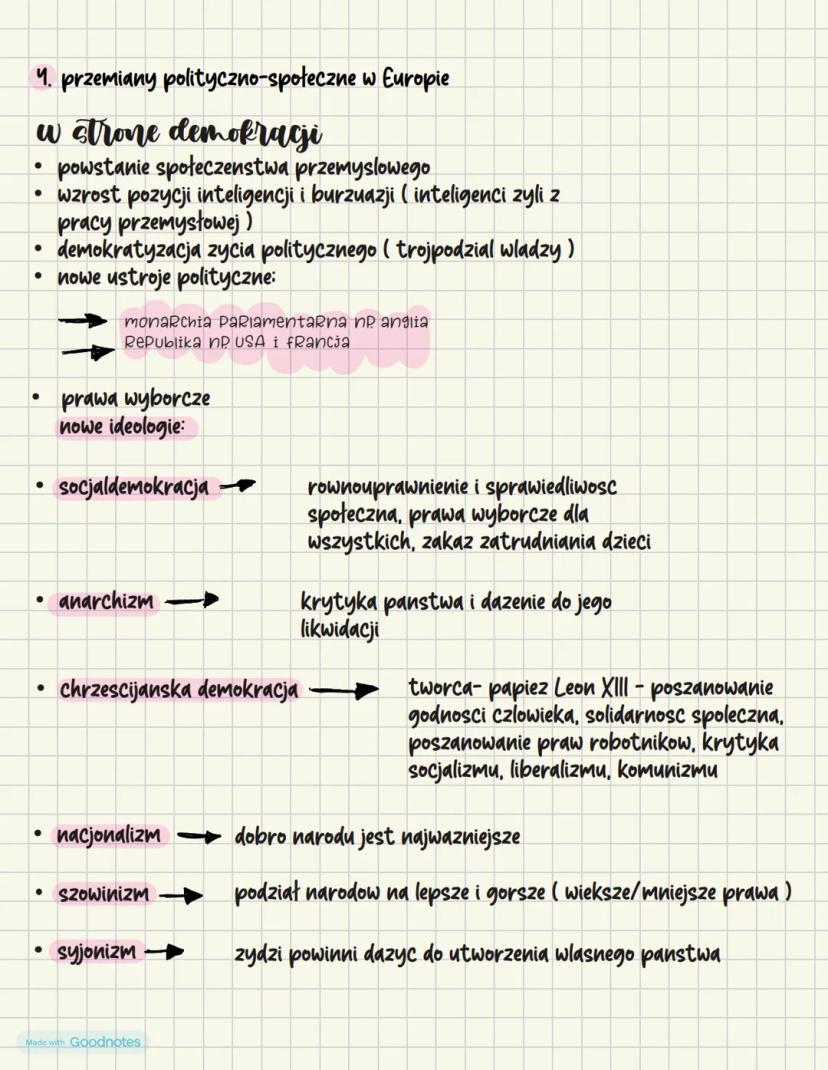 4. przemiany polityczno-społeczne w Europie
w strone demokracji
• powstanie społeczenstwa przemyslowego
• wzrost pozycji inteligencji i burzuazji ( inteligenci zyli z
pracy przemysłowej )
• demokratyzacja zycia politycznego ( trojpodzial wladzy )
• nowe ustroje polityczne:
monarchia parlamentarna np. anglia
Republika np. USA i francja
• prawa wyborcze
nowe ideologie:
• socjaldemokracja
rownouprawnienie i sprawiedliwosc
społeczna, prawa wyborcze dla
wszystkich, zakaz zatrudniania dzieci
• anarchizm
krytyka panstwa i dazenie do jego
likwidacji
• chrzescijanska demokracja
tworca- papiez Leon XIII - poszanowanie
godnosci czlowieka, solidarnosc spoleczna,
poszanowanie praw robotnikow, krytyka
socjalizmu, liberalizmu, komunizmu
• nacjonalizm dobro narodu jest najwazniejsze
• szowinizm podział narodow na lepsze i gorsze ( wieksze/mniejsze prawa )
• syjonizm zydzi powinni dazyc do utworzenia wlasnego panstwa
Made with Goodnotes